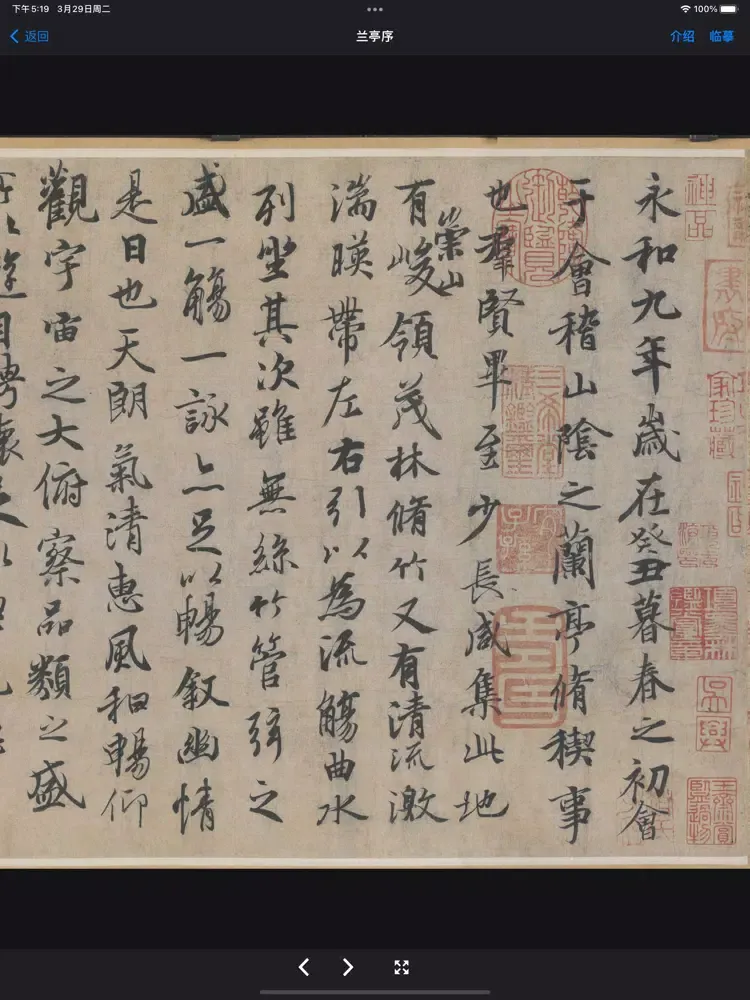 下午5:19 3月29日周二
100%
返回
兰亭序
介绍 临摹
永和九年歲在癸丑暮春之初會
于會稽山陰之蘭亭脩稧事
也羣賢畢至少長咸集此地
有崇山峻領茂林脩竹又有清流激
湍暎帶左右引以為流觴曲水
列坐其次雖無絲竹管弦之
盛一觴一詠亦足以暢叙幽情
是日也天朗氣清惠風和暢仰
觀宇宙之大俯察品類之盛